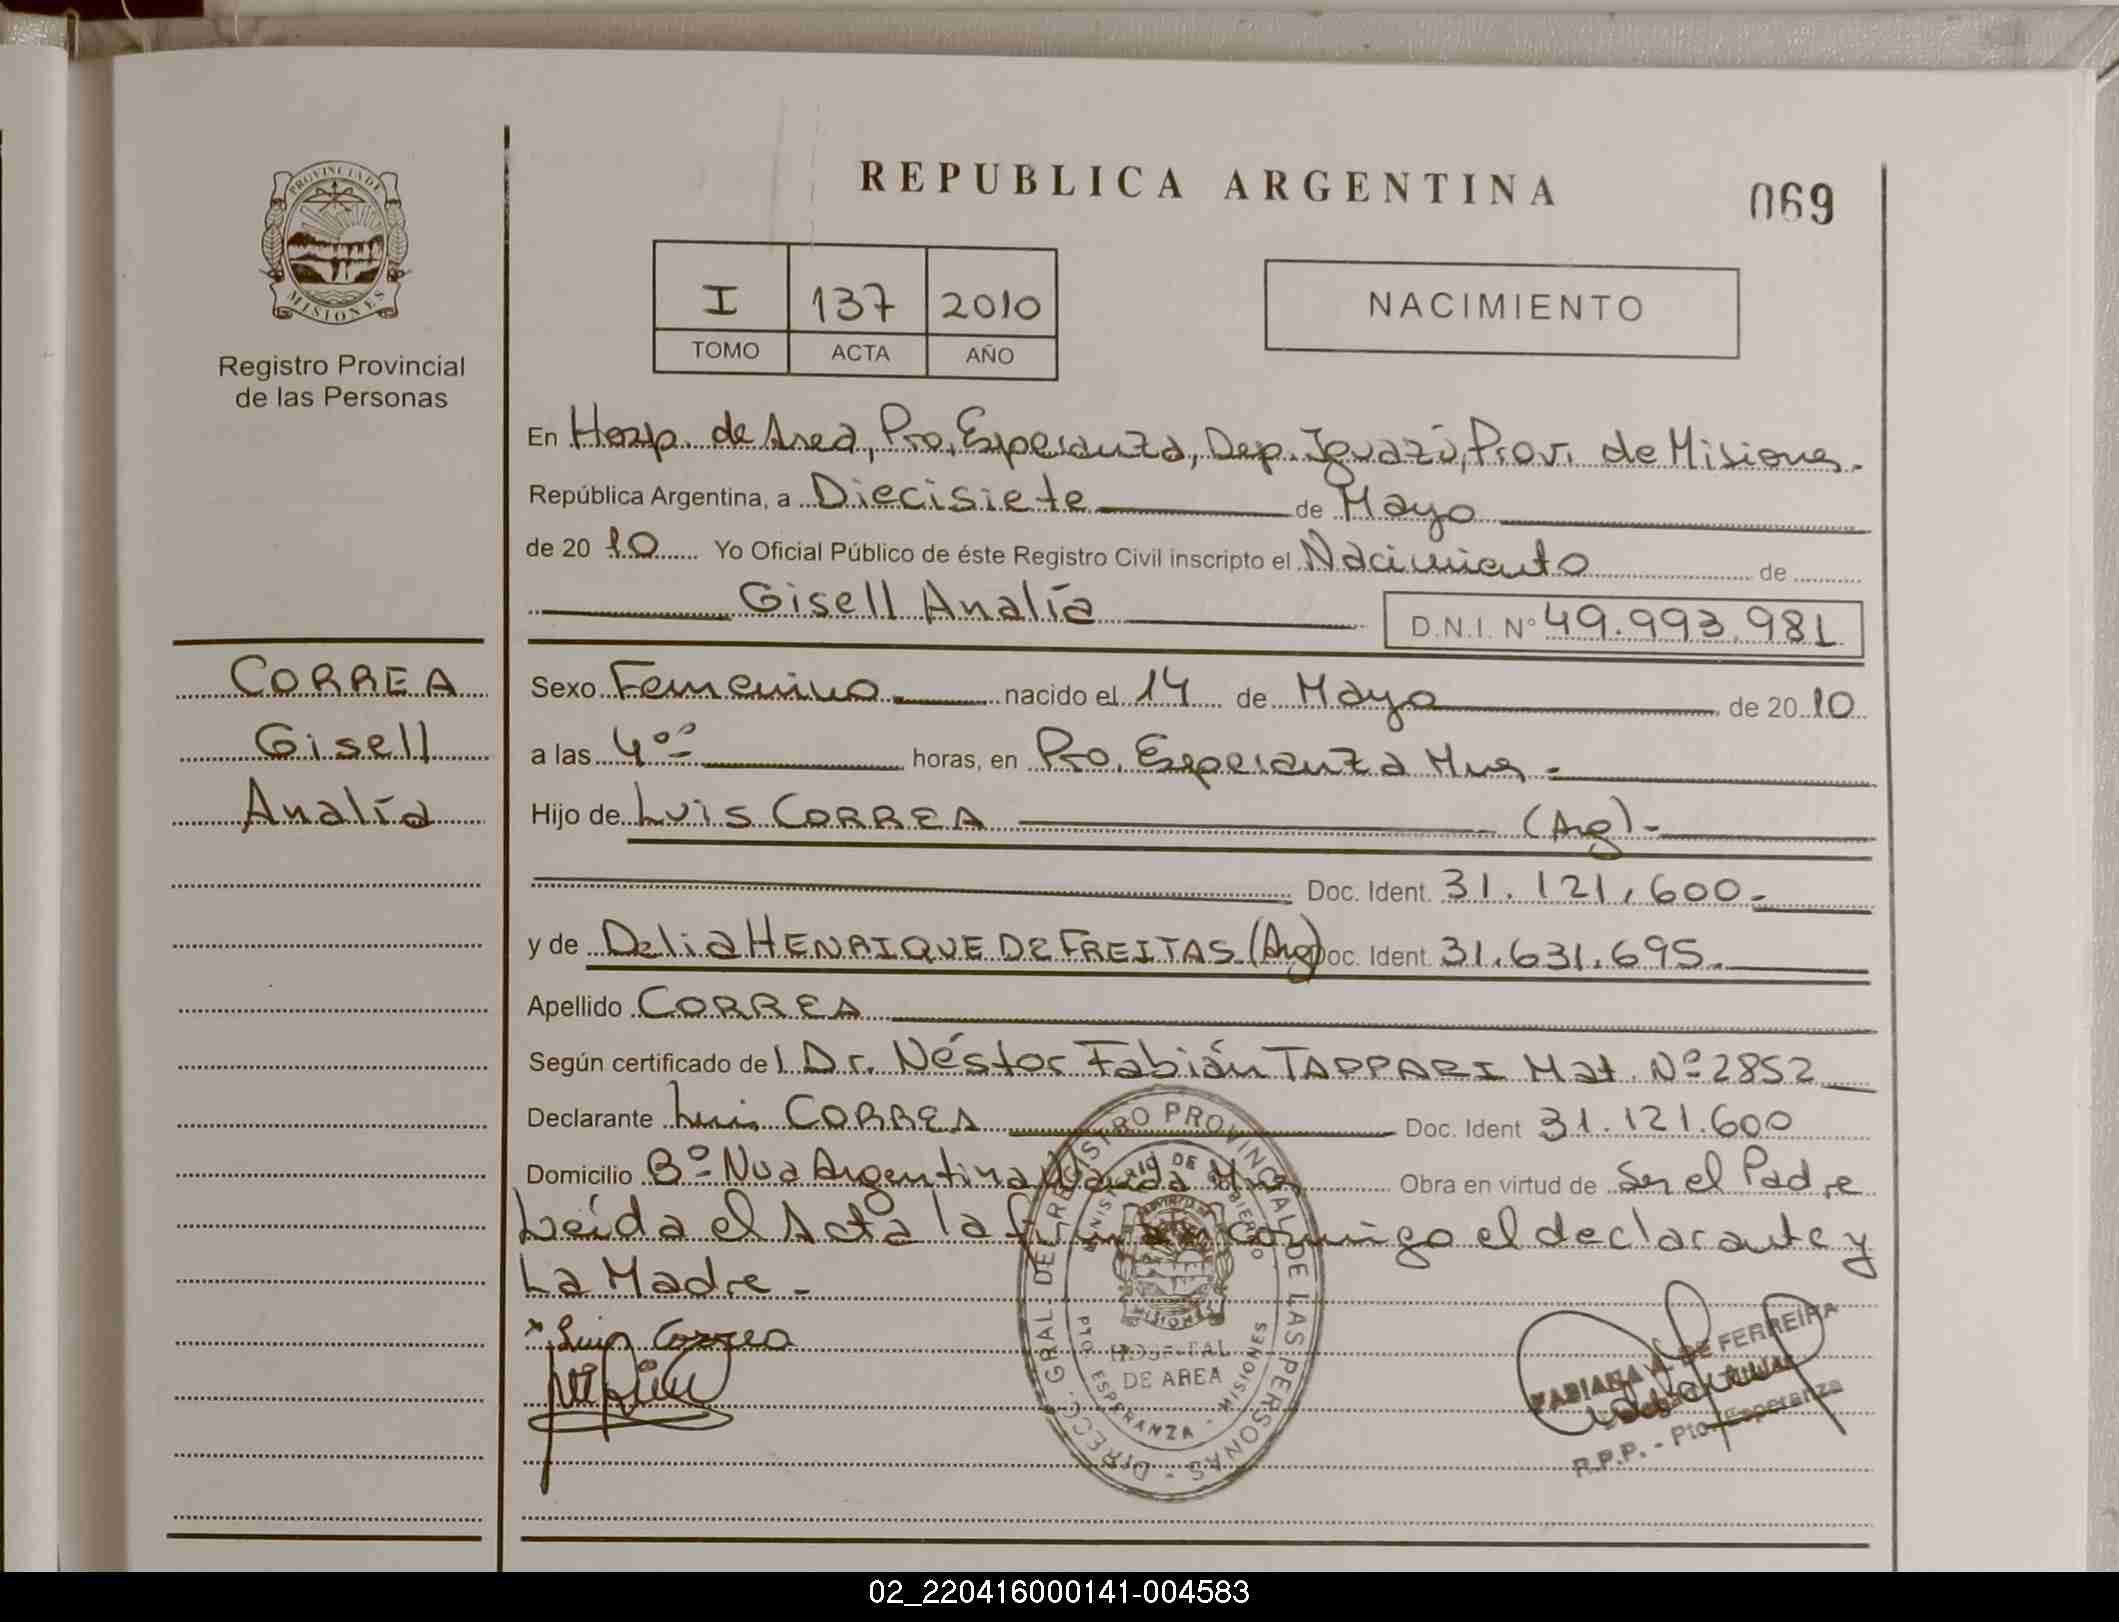 PROVINCIA DE MISIONES
Registro Provincial
de las Personas
REPUBLICA ARGENTINA
069
I 137 2010
TOMO ACTA AÑO
NACIMIENTO
En Hosp. de Area, Pto. Esperanza, Dep. Iguazú, Prov. de Misiones.
República Argentina, a Diecisiete de Mayo
de 20 10 Yo Oficial Público de éste Registro Civil inscripto el Nacimiento de
Gisell Analía D.N.I. Nº 49.993.981
CORREA
Gisell
Analía
Sexo Femenino nacido el 14 de Mayo de 20 10
a las 4ºº horas, en Pto. Esperanza Mnes.
Hijo de Luis CORREA (Arg)
Doc. Ident. 31.121.600
y de Delia HENRIQUE DE FREITAS (Arg) Doc. Ident. 31.631.695.
Apellido CORREA
Según certificado del Dr. Néstor Fabián TAPPARI Mat. Nº 2852
Declarante Luis CORREA Doc. Ident 31.121.600
Domicilio Bº Nva Argentina Wanda Mnes Obra en virtud de Ser el Padre
Leída el Acta la firman conmigo el declarante y
La Madre.
x Luis Correa
DIRECC. GRAL DE REGISTRO PROVINCIAL DE LAS PERSONAS
MINISTERIO DE GOBIERNO
HOSPITAL
DE AREA
PTO. ESPERANZA - MISIONES
FABIANA DE FERREIRA
R.P.P. - Pto. Esperanza
02_220416000141-004583